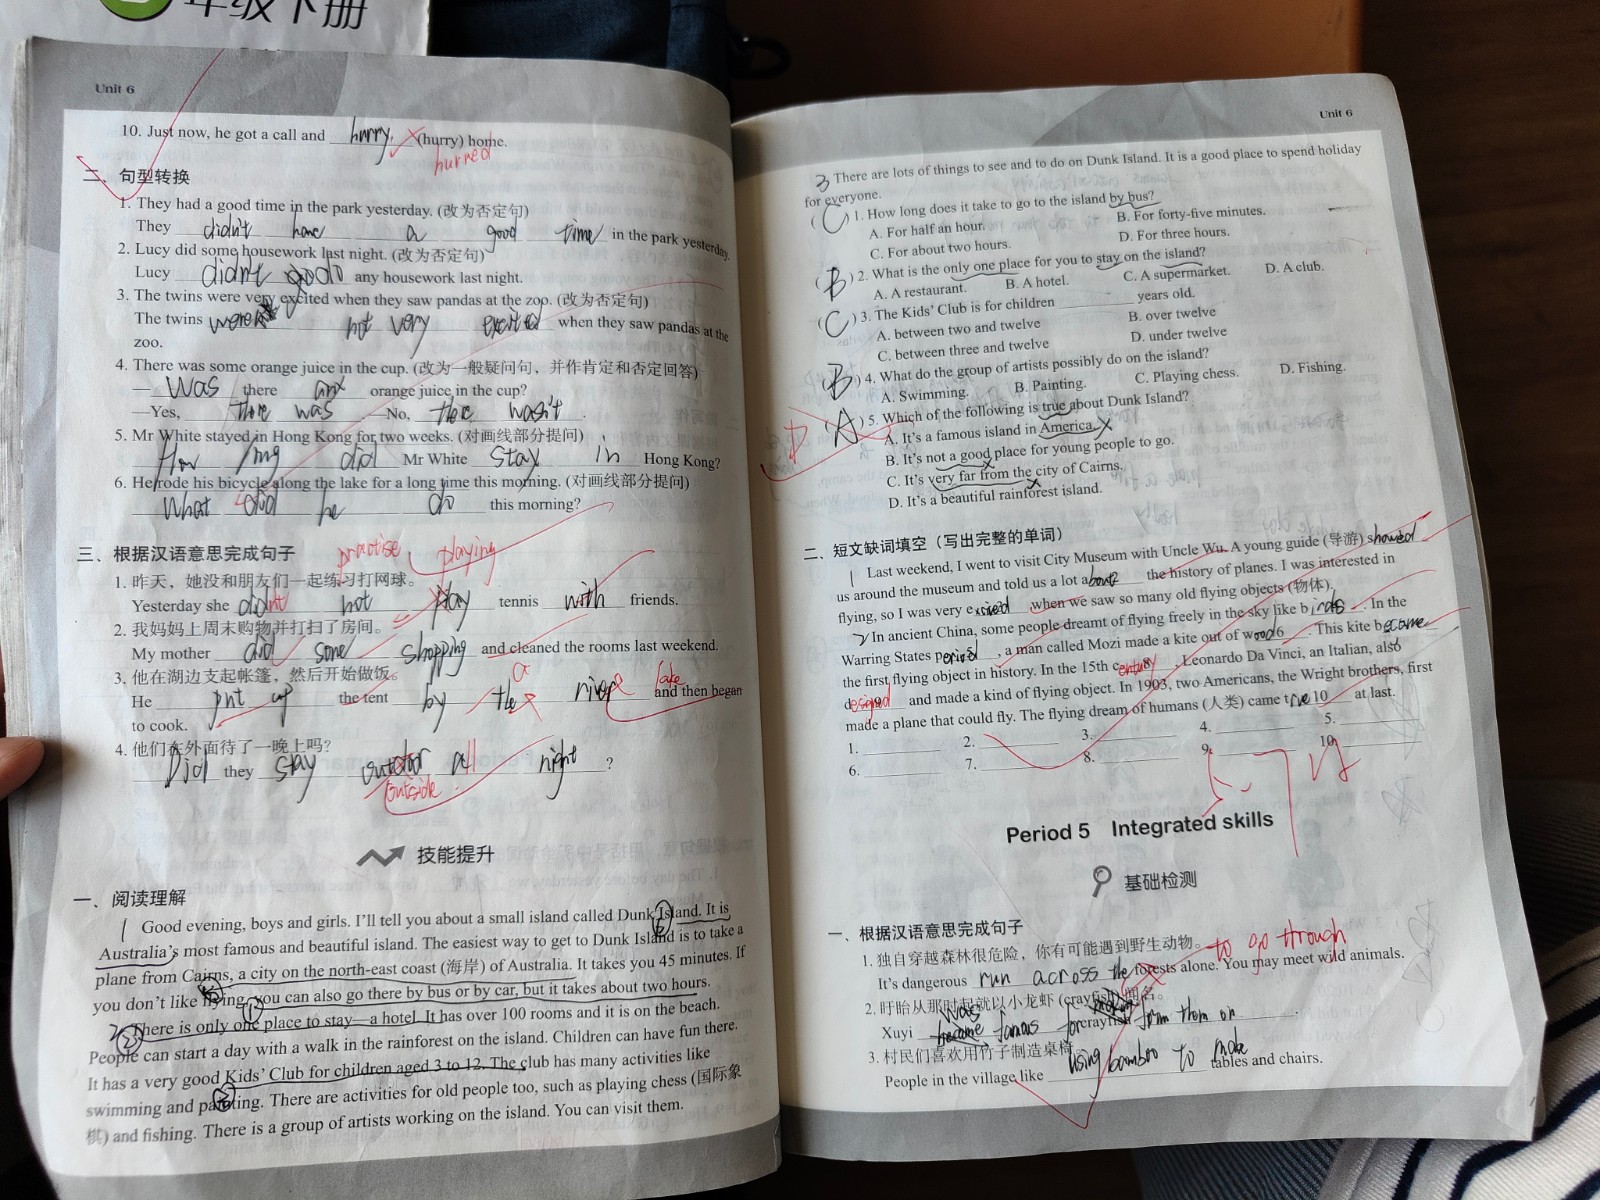 年级下册
Unit 6
10. Just now, he got a call and hurry (hurry) home.
hurried
二、句型转换
1. They had a good time in the park yesterday. (改为否定句)
They didn't have a good time in the park yesterday.
2. Lucy did some housework last night. (改为否定句)
Lucy didn't do any housework last night.
3. The twins were very excited when they saw pandas at the zoo. (改为否定句)
The twins were not very excited when they saw pandas at the
zoo.
4. There was some orange juice in the cup. (改为一般疑问句，并作肯定和否定回答)
— Was there any orange juice in the cup?
—Yes, there was. No, there wasn't.
5. Mr White stayed in Hong Kong for two weeks. (对画线部分提问)
How long did Mr White stay in Hong Kong?
6. He rode his bicycle along the lake for a long time this morning. (对画线部分提问)
What did he do this morning?
三、根据汉语意思完成句子
practise playing
1. 昨天，她没和朋友们一起练习打网球。
Yesterday she didn't not play tennis with friends.
2. 我妈妈上周末购物并打扫了房间。
My mother did some shopping and cleaned the rooms last weekend.
3. 他在湖边支起帐篷，然后开始做饭。
a lake
He put up the tent by the river and then began
to cook.
4. 他们在外面待了一晚上吗？
Did they stay outdoor all night ?
outside
技能提升
一、阅读理解
1 Good evening, boys and girls. I'll tell you about a small island called Dunk Island. It is
Australia's most famous and beautiful island. The easiest way to get to Dunk Island is to take a
plane from Cairns, a city on the north-east coast (海岸) of Australia. It takes you 45 minutes. If
you don't like flying, you can also go there by bus or by car, but it takes about two hours.
2 There is only one place to stay—a hotel. It has over 100 rooms and it is on the beach.
People can start a day with a walk in the rainforest on the island. Children can have fun there.
It has a very good Kids' Club for children aged 3 to 12. The club has many activities like
swimming and painting. There are activities for old people too, such as playing chess (国际象
棋) and fishing. There is a group of artists working on the island. You can visit them.
Unit 6
3 There are lots of things to see and to do on Dunk Island. It is a good place to spend holiday
for everyone.
(C) 1. How long does it take to go to the island by bus?
A. For half an hour. B. For forty-five minutes.
C. For about two hours. D. For three hours.
(B) 2. What is the only one place for you to stay on the island?
A. A restaurant. B. A hotel. C. A supermarket. D. A club.
(C) 3. The Kids' Club is for children ________ years old.
A. between two and twelve B. over twelve
C. between three and twelve D. under twelve
(B) 4. What do the group of artists possibly do on the island?
A. Swimming. B. Painting. C. Playing chess. D. Fishing.
D (A) 5. Which of the following is true about Dunk Island?
A. It's a famous island in America.
B. It's not a good place for young people to go.
C. It's very far from the city of Cairns.
D. It's a beautiful rainforest island.
二、短文缺词填空（写出完整的单词）
1 Last weekend, I went to visit City Museum with Uncle Wu. A young guide (导游) showed
us around the museum and told us a lot about the history of planes. I was interested in
flying, so I was very excited when we saw so many old flying objects (物体).
2 In ancient China, some people dreamt of flying freely in the sky like birds. In the
Warring States period, a man called Mozi made a kite out of wood6. This kite became
the first flying object in history. In the 15th century, Leonardo Da Vinci, an Italian, also
designed and made a kind of flying object. In 1903, two Americans, the Wright brothers, first
made a plane that could fly. The flying dream of humans (人类) came true 10 at last.
1. 2. 3. 4. 5.
6. 7. 8. 9. 10.
Period 5 Integrated skills
基础检测
一、根据汉语意思完成句子
1. 独自穿越森林很危险，你有可能遇到野生动物。
to go through
It's dangerous run across the forests alone. You may meet wild animals.
2. 盱眙从那时起就以小龙虾 (crayfish) 闻名。
was
Xuyi became famous for crayfish form then on.
3. 村民们喜欢用竹子制造桌椅。
People in the village like using bamboo to make tables and chairs.